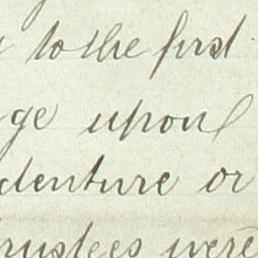 to the first
ge upon
denture or
rustees were